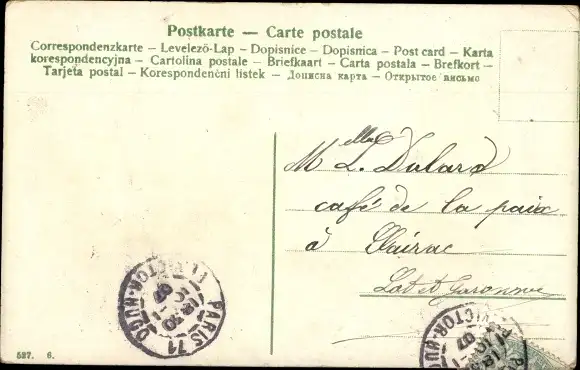 Postkarte — Carte postale
Correspondenzkarte – Levelezö-Lap – Dopisnice – Dopisnica – Post card – Karta
korespondencyjna – Cartolina postale – Briefkaart – Carta postala – Brefkort –
Tarjeta postal – Korespondenční listek – Дописна карта – Открытое письмо
Melle L. Dulard
café de la paix
à Clairac
Lot et Garonne
PARIS 71
PL. VICTOR-HUGO
18 30
07
VICTOR-HUGO
07
527. 6.